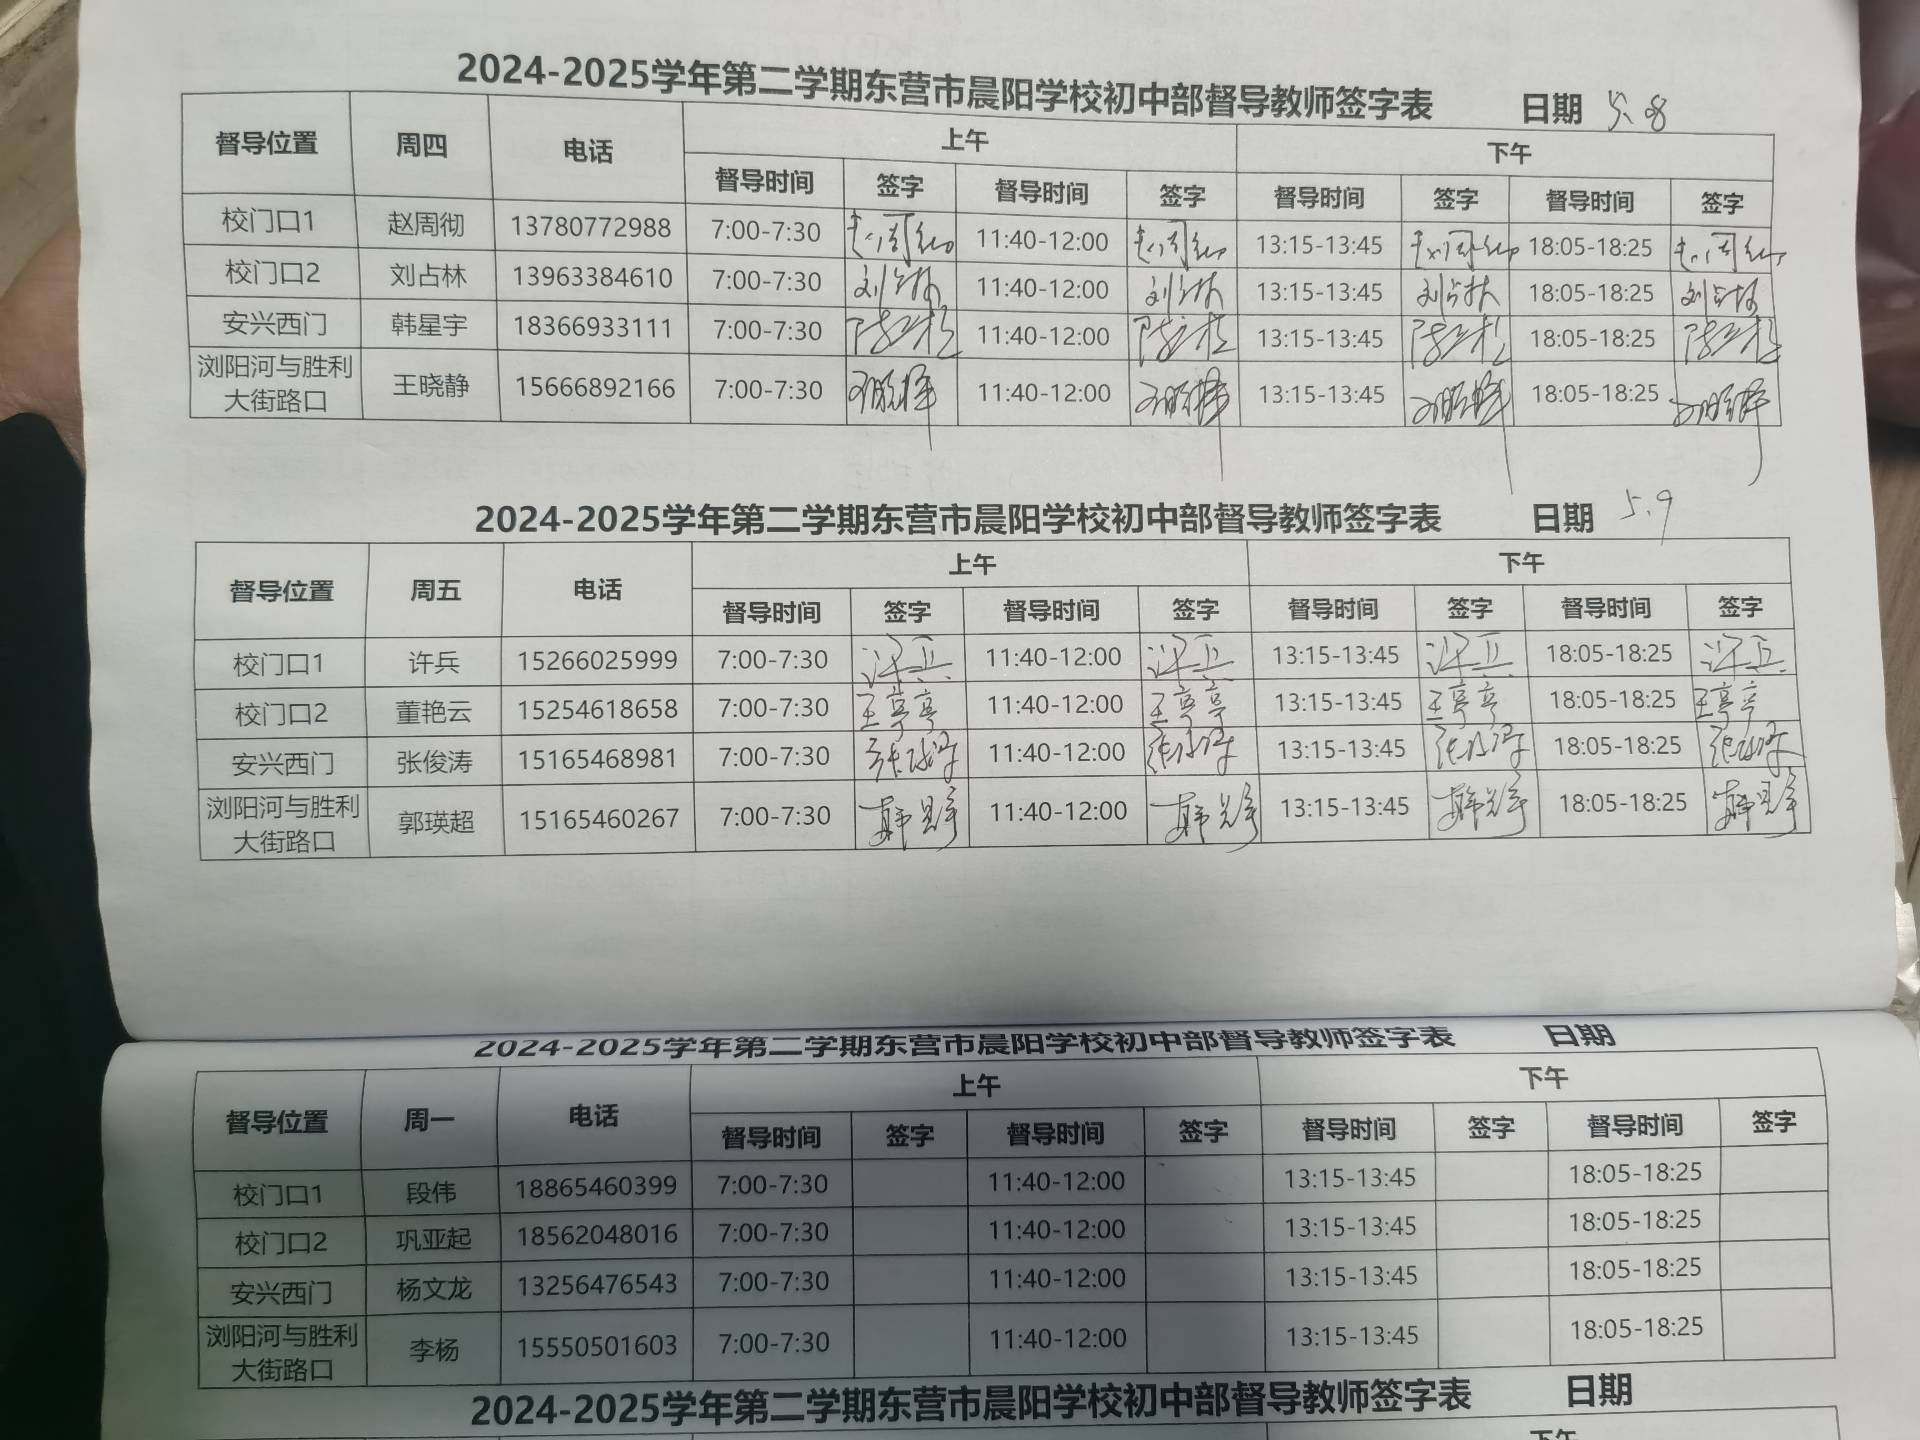 2024-2025学年第二学期东营市晨阳学校初中部督导教师签字表 日期 5.8
督导位置 周四 电话 上午 下午
督导时间 签字 督导时间 签字 督导时间 签字 督导时间 签字
校门口1 赵周彻 13780772988 7:00-7:30 11:40-12:00 13:15-13:45 18:05-18:25
校门口2 刘占林 13963384610 7:00-7:30 刘占林 11:40-12:00 刘占林 13:15-13:45 刘占林 18:05-18:25 刘占林
安兴西门 韩星宇 18366933111 7:00-7:30 11:40-12:00 13:15-13:45 18:05-18:25
浏阳河与胜利
大街路口 王晓静 15666892166 7:00-7:30 11:40-12:00 13:15-13:45 18:05-18:25
2024-2025学年第二学期东营市晨阳学校初中部督导教师签字表 日期 5.9
督导位置 周五 电话 上午 下午
督导时间 签字 督导时间 签字 督导时间 签字 督导时间 签字
校门口1 许兵 15266025999 7:00-7:30 许兵 11:40-12:00 许兵 13:15-13:45 许兵 18:05-18:25 许兵
校门口2 董艳云 15254618658 7:00-7:30 王亭亭 11:40-12:00 王亭亭 13:15-13:45 王亭亭 18:05-18:25 王亭亭
安兴西门 张俊涛 15165468981 7:00-7:30 张俊涛 11:40-12:00 张俊涛 13:15-13:45 张俊涛 18:05-18:25 张俊涛
浏阳河与胜利
大街路口 郭瑛超 15165460267 7:00-7:30 韩星宇 11:40-12:00 韩星宇 13:15-13:45 韩星宇 18:05-18:25 韩星宇
2024-2025学年第二学期东营市晨阳学校初中部督导教师签字表 日期
督导位置 周一 电话 上午 下午
督导时间 签字 督导时间 签字 督导时间 签字 督导时间 签字
校门口1 段伟 18865460399 7:00-7:30 11:40-12:00 13:15-13:45 18:05-18:25
校门口2 巩亚起 18562048016 7:00-7:30 11:40-12:00 13:15-13:45 18:05-18:25
安兴西门 杨文龙 13256476543 7:00-7:30 11:40-12:00 13:15-13:45 18:05-18:25
浏阳河与胜利
大街路口 李杨 15550501603 7:00-7:30 11:40-12:00 13:15-13:45 18:05-18:25
2024-2025学年第二学期东营市晨阳学校初中部督导教师签字表 日期
下午